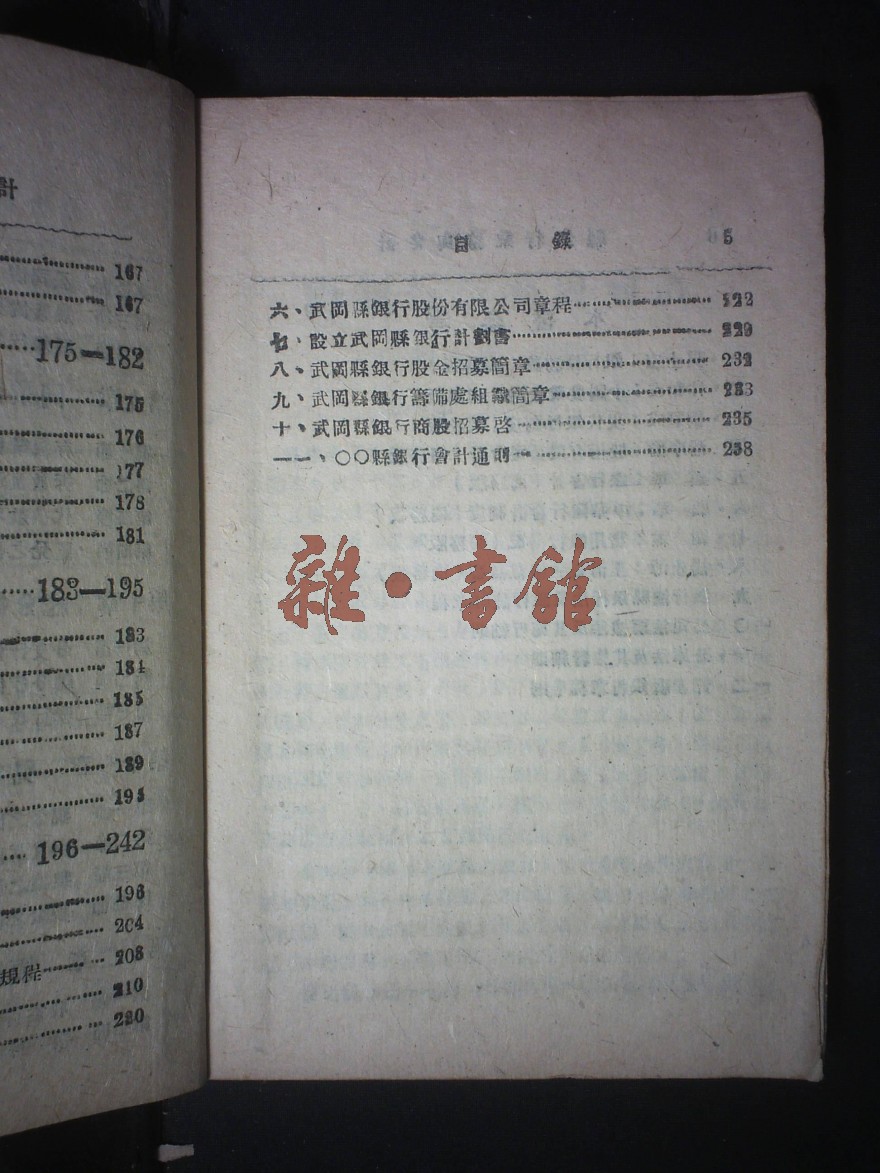 計
167
167
175—182
175
176
177
178
181
183—195
183
184
185
187
189
195
196—242
196
204
規程 208
210
220
目錄 5
六、武岡縣銀行股份有限公司章程 222
七、設立武岡縣銀行計劃書 229
八、武岡縣銀行股金招募簡章 232
九、武岡縣銀行籌備處組織簡章 233
十、武岡縣銀行商股招募啓 235
一一、〇〇縣銀行會計通則 238
雜·書館